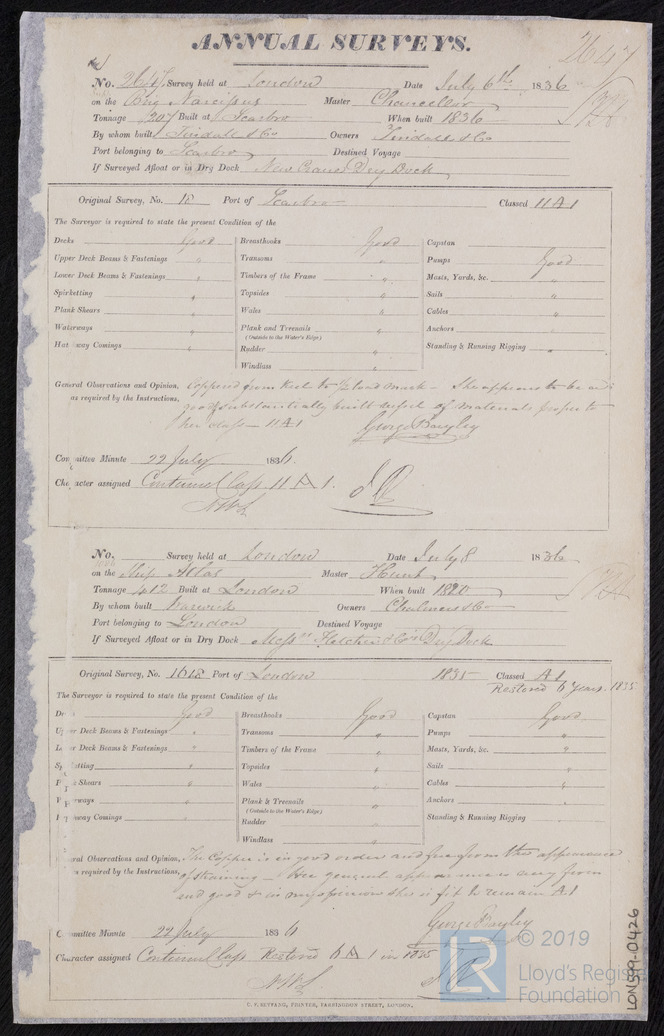 ANNUAL SURVEYS.
2647
No. 2647 Survey held at London Date July 6th 1836
on the Brig Narcissus Master Chancellor
Tonnage 207 Built at Scarbro When built 1836
By whom built Tindall & Co Owners Tindall & Co
Port belonging to Scarbro Destined Voyage
If Surveyed Afloat or in Dry Dock New Crane Dry Dock
Original Survey, No. 18 Port of Scarbro Classed 11 A 1
The Surveyor is required to state the present Condition of the
Decks Good Breasthooks Good Capstan
Upper Deck Beams & Fastenings " Transoms " Pumps Good
Lower Deck Beams & Fastenings " Timbers of the Frame " Masts, Yards, &c. "
Spirketting " Topsides " Sails "
Plank Shears " Wales " Cables "
Waterways " Plank and Treenails " Anchors "
(Outside to the Water's Edge)
Hatchway Comings " Rudder " Standing & Running Rigging "
Windlass "
General Observations and Opinion, Coppered from Keel to load mark - She appears to be a
as required by the Instructions, good substantially built vessel of materials proper to
her class - 11 A 1 George Bayley
Committee Minute 22 July 1836
Character assigned Continued Class 11 A 1.
No. Survey held at London Date July 8 1836
on the Ship Atlas Master Hunt
Tonnage 412 Built at London When built 1820
By whom built Warwick Owners Chalmers & Co
Port belonging to London Destined Voyage
If Surveyed Afloat or in Dry Dock Messrs Fletcher & Co's Dry Dock
Original Survey, No. 1618 Port of London 1835 Classed A 1
Restored 6 Years 1835
The Surveyor is required to state the present Condition of the
De Good Breasthooks Good Capstan Good
Upper Deck Beams & Fastenings " Transoms " Pumps "
Lower Deck Beams & Fastenings " Timbers of the Frame " Masts, Yards, &c. "
Sp tting " Topsides " Sails "
P Shears " Wales " Cables "
ways " Plank & Treenails " Anchors "
(Outside to the Water's Edge)
way Comings " Rudder " Standing & Running Rigging "
Windlass "
ral Observations and Opinion, The Copper is in good order and free from the appearance
s required by the Instructions, of straining - Her general appearance is very firm
and good & in my opinion she is fit to remain A1
George Bayley
Committee Minute 22 July 1836
Character assigned Continued Class Restored 6 A 1 in 1835
C. F. SEYFANG, PRINTER, FARRINGDON STREET, LONDON.
LON599-0426
LR © 2019
Lloyd's Register
Foundation